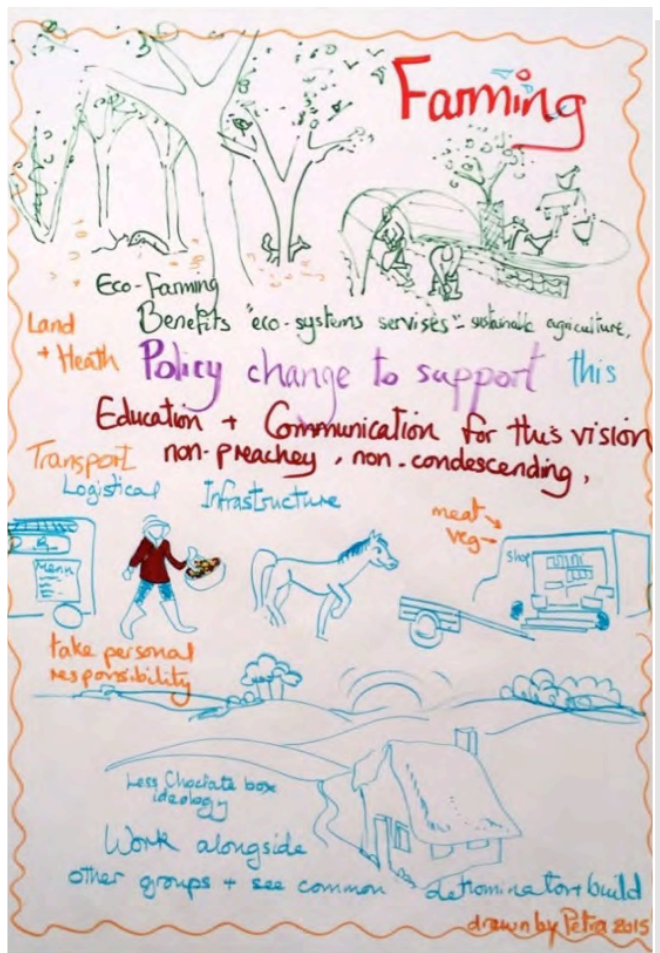 Farming
Eco-Farming
Benefits "eco-systems servises" - sustainable agriculture.
Land
+ Heath
Policy change to support this
Education + Communication for this vision
non-preachey, non-condescending,
Transport
Logistical Infrastructure
meat
veg
Menu
Shop
take personal
responsibility
Less Choclate box
ideology
Work alongside
other groups + see common denominator + build
drawn by Petra 2015